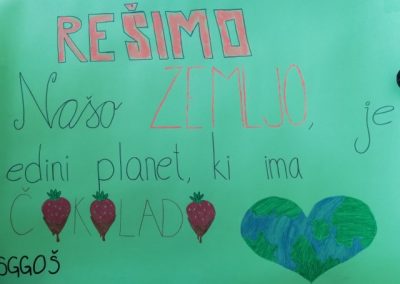 REŠIMO
Našo ZEMLJO, je
edini planet, ki ima
ČOKOLADO
SGGOŠ